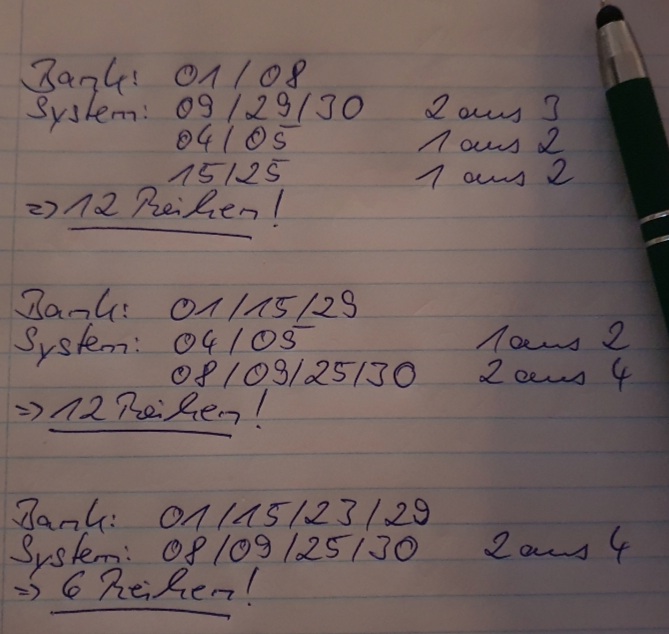 Bank: 01/08
System: 09/29/30 2 aus 3
04/05 1 aus 2
15/25 1 aus 2
=> 12 Reihen!
Bank: 01/15/29
System: 04/05 1 aus 2
08/09/25/30 2 aus 4
=> 12 Reihen!
Bank: 01/15/23/29
System: 08/09/25/30 2 aus 4
=> 6 Reihen!